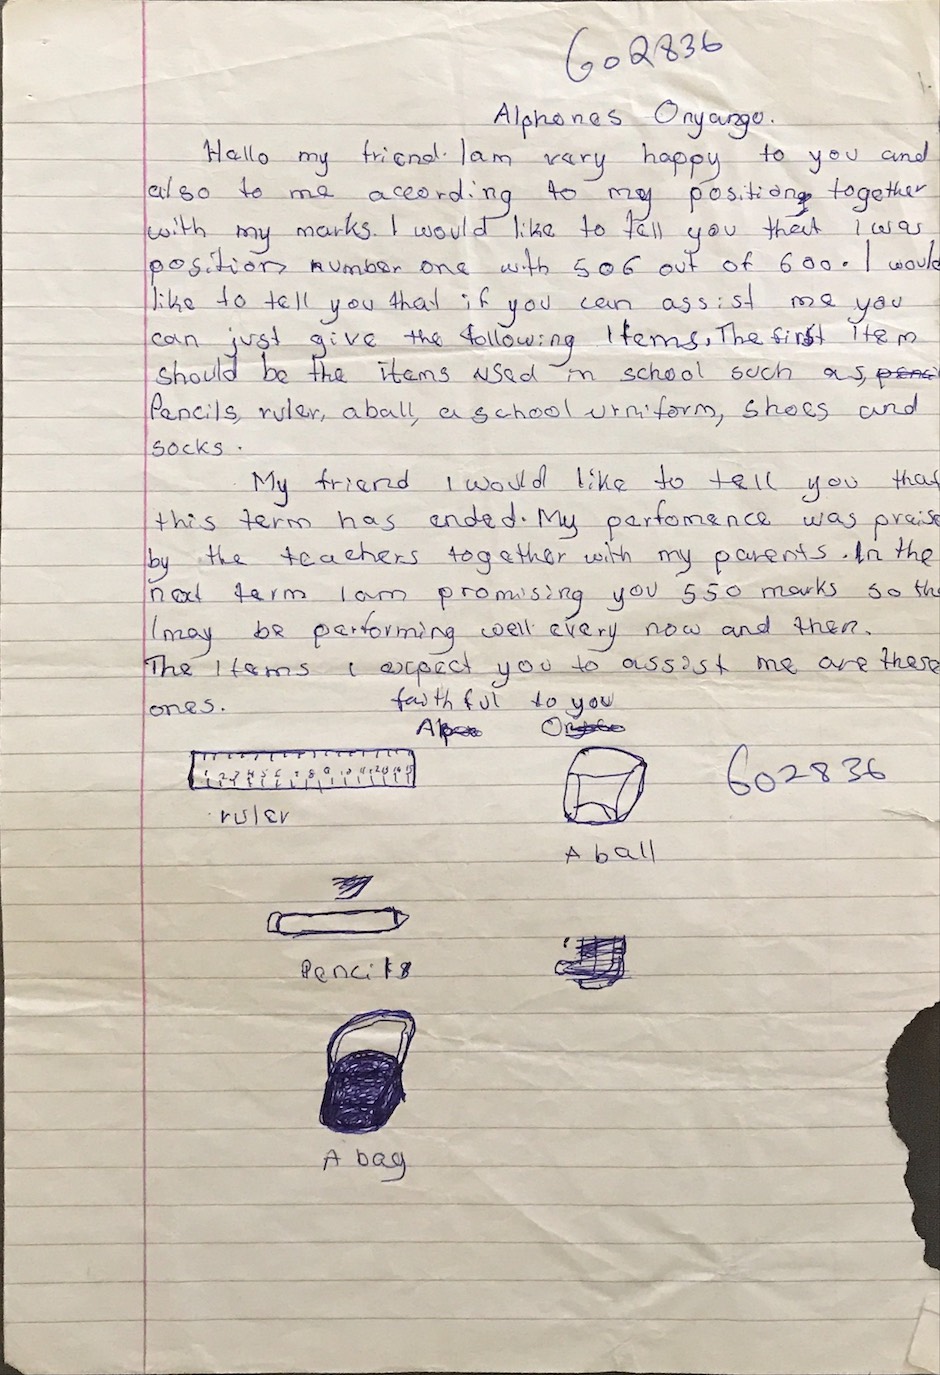 602836
Alphones Onyango.
Hallo my friend. I am vary happy to you and
also to me acording to my position together
with my marks. I would like to tell you that I was
position number one with 506 out of 600. I would
like to tell you that if you can assist me you
can just give the following Items, The first Item
should be the items used in school such as, penci
Pencils, ruler, a ball, a school urniform, shoes and
socks.
My friend I would like to tell you that
this term has ended. My perfomance was prais
by the teachers together with my parents. In the
next term I am promising you 550 marks so tha
I may be performing well every now and then.
The Items I expect you to assist me are these
ones. faithful to you
ruler
602836
A ball
Pencils
A bag